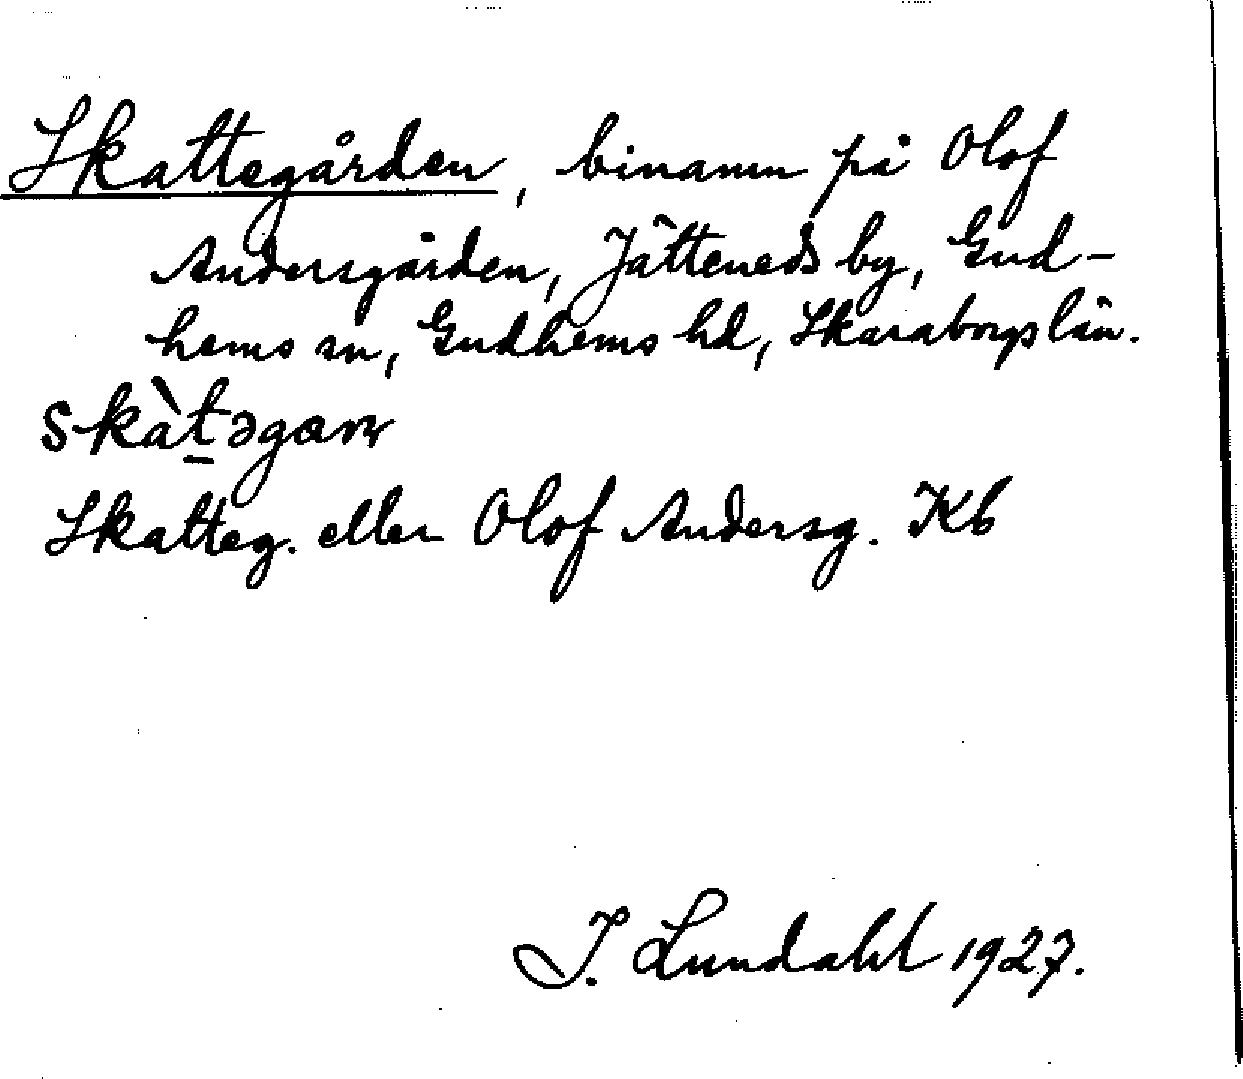 Skattegården, binamn på Olof
Andersgården, Jätteneds by, Gud-
hems sn, Gudhems hd, Skaraborgs län.
Skatteg. eller Olof Andersg. Kb
J. Lundahl 1927.